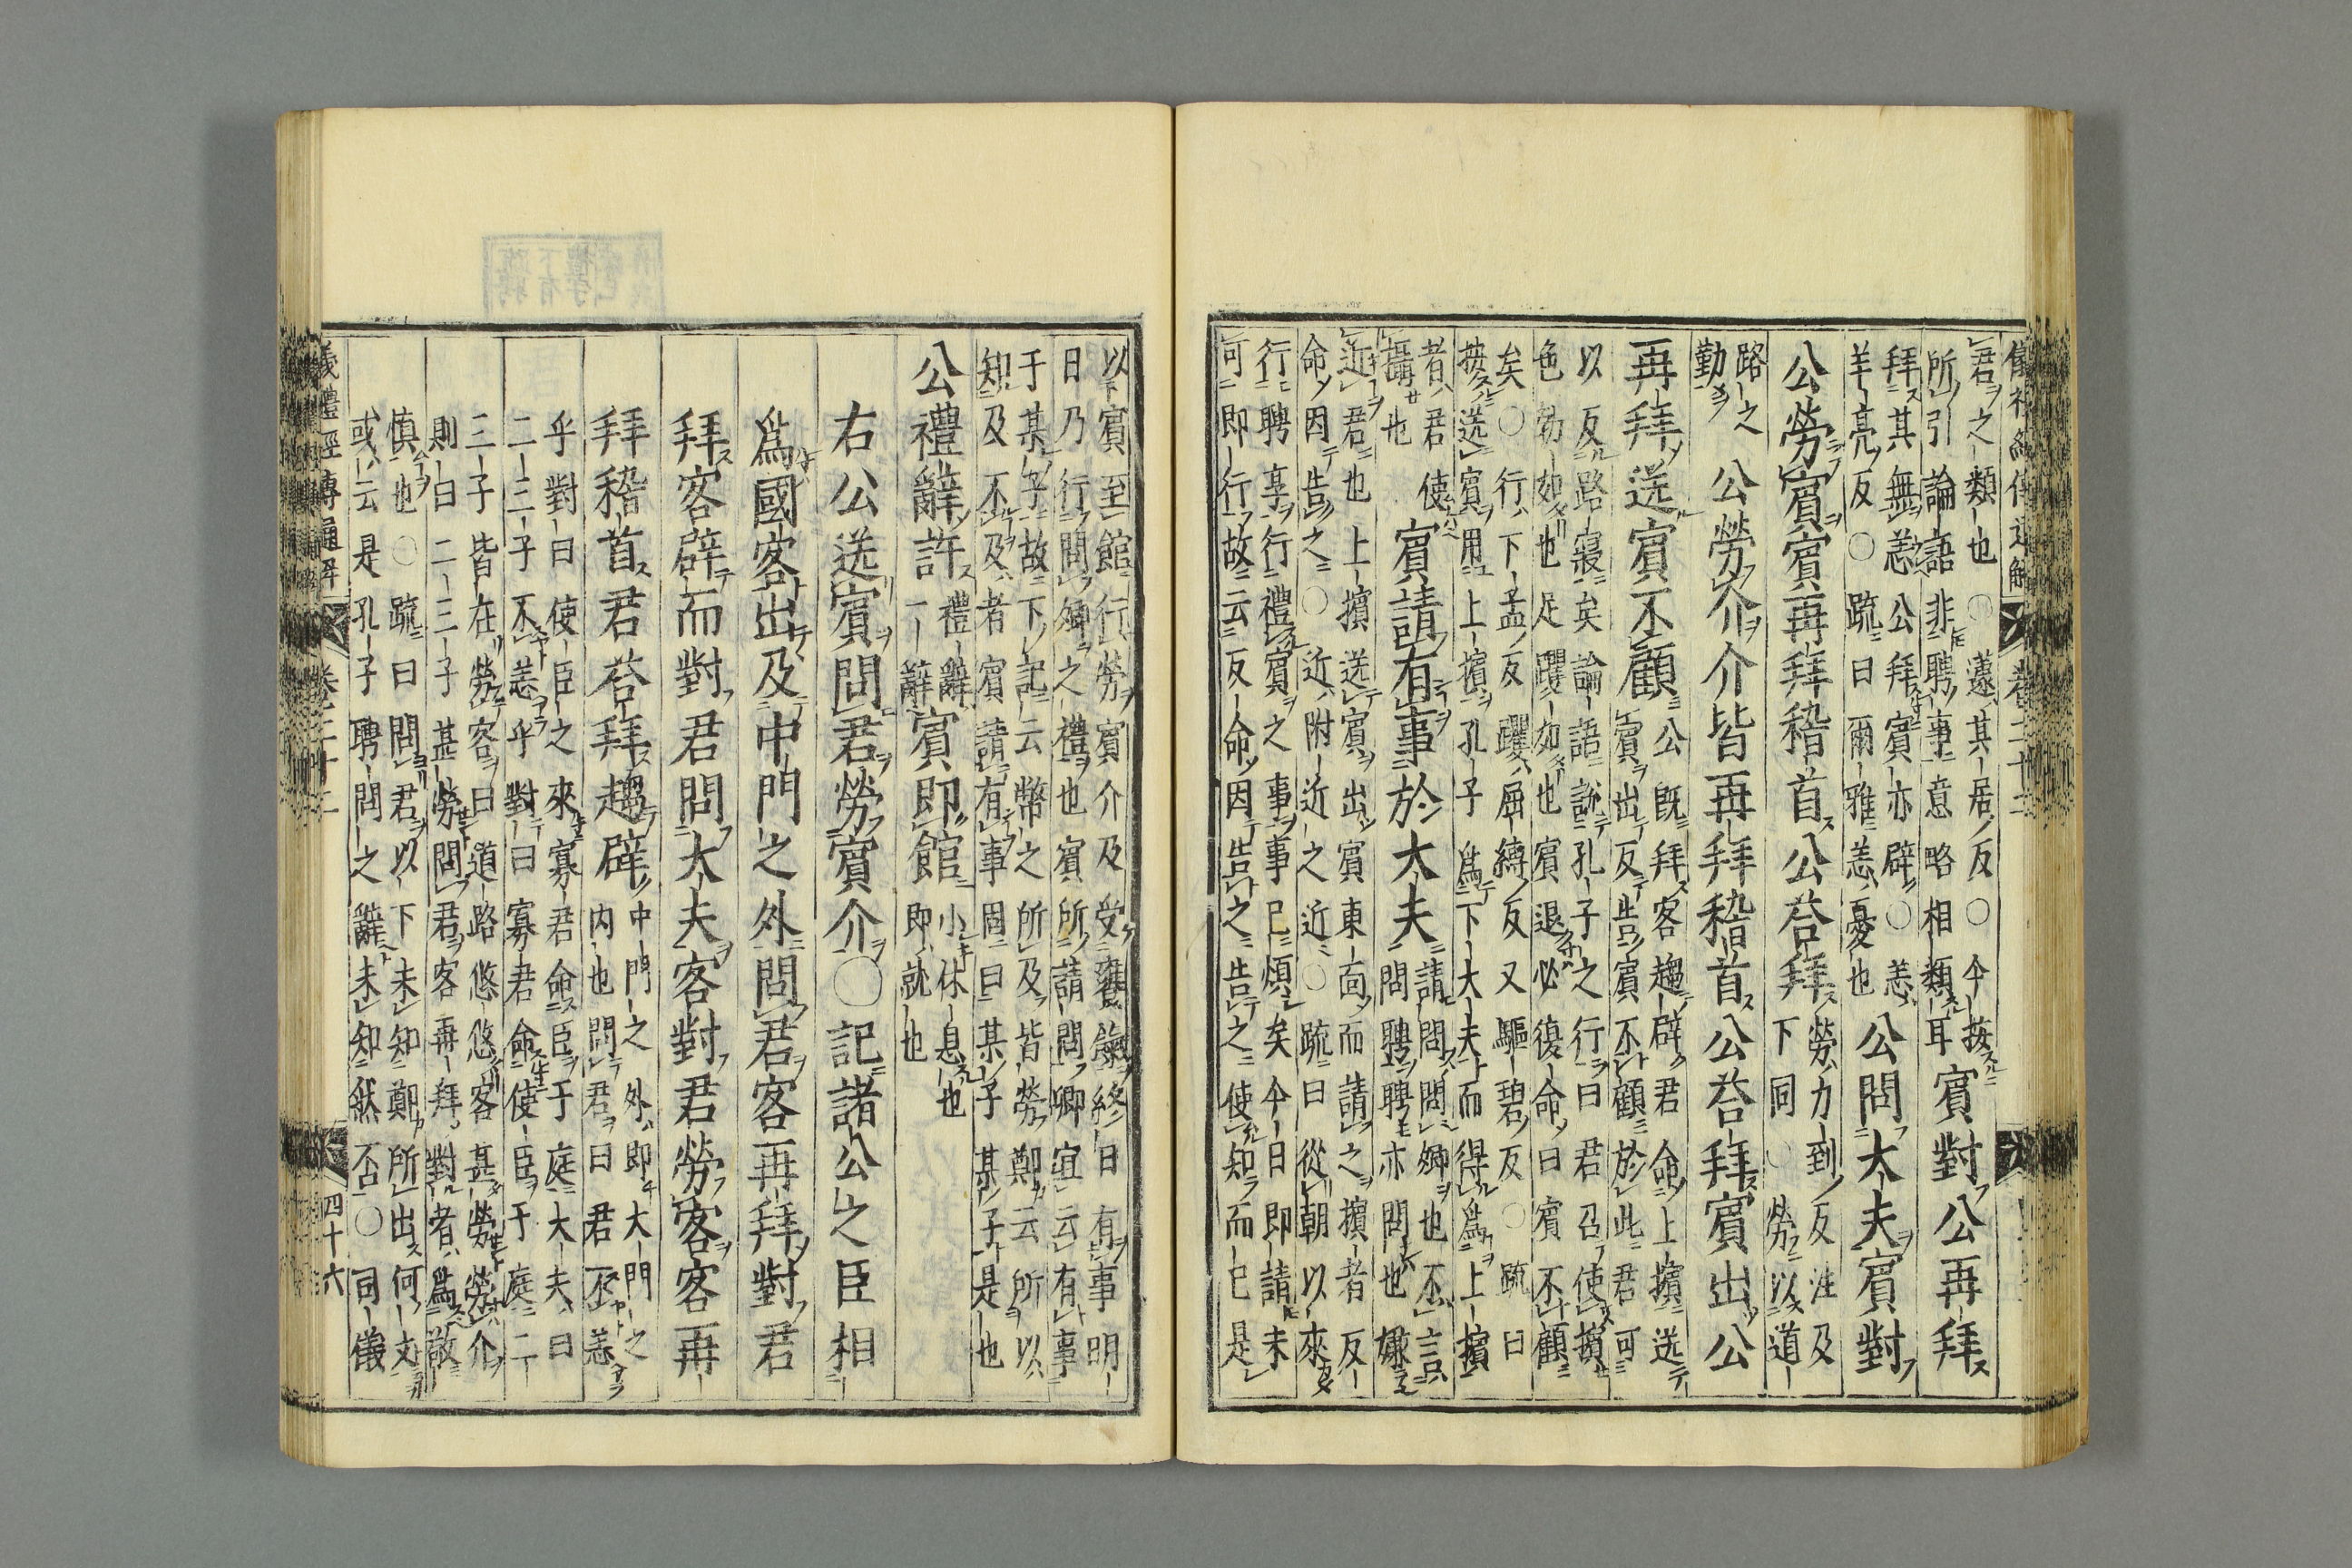 儀禮經傳通解 卷二十二
君之類也○蘧其居反○今按
所引論語非聘事意略相類耳
賓對公再拜
拜其無恙公拜賓亦辟○恙
羊亮反○疏曰爾雅恙憂也
公問大夫賓對
公勞賓賓再拜稽首公荅拜
勞力到反注及
下同○勞以道
路之
勤
公勞介介皆再拜稽首公荅拜賓出公
再拜送賓不顧
公既拜客趨辟君命上擯送
賓出反告賓不顧於此君可
以反路寢矣論語說孔子之行曰君召使擯
色勃如也足躩如也賓退必復命曰賓不顧
矣○行下孟反躩屈縛反又驅碧反○疏曰
按送賓用上擯孔子爲下大夫而得爲上擯
者君使
攝也
賓請有事於大夫
請問問卿也不言
問聘聘亦問也嫌
近君也上擯送賓出賓東面而請之擯者反
命因告之○近附近之近○疏曰從朝以來
行聘享行禮賓之事事已煩矣今日即請未
可即行故云反命因告之告之使知而已是
以賓至館行勞賓介及受饔餼終日有事明
日乃行問卿之禮也賓所請問卿宜云有事
于某子故下記云幣之所及皆勞鄭云所以
知及不及者賓請有事固曰某子某子是也
公禮辭許
禮辭
一辭
賓即館
小休息也
即就也
右公送賓問君勞賓介○記諸公之臣相
爲國客出及中門之外問君客再拜對君
拜客辟而對君問大夫客對君勞客客再
拜稽首君荅拜趨辟
中門之外即大門之
内也問君曰君不恙
乎對曰使臣之來寡君命臣于庭大夫曰
二三子不恙乎對曰寡君命使臣于庭二
三子皆在勞客曰道路悠悠客甚勞勞介
則曰二三子甚勞問君客再拜對者爲敬
慎也○疏曰問君以下未知鄭所出何文
或云是孔子聘問之辭未知然否○司儀
儀禮經傳通解 卷二十二 四十六